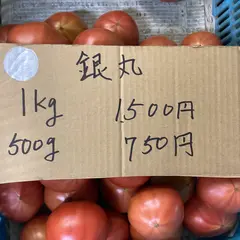 銀丸
1kg 1500円
500g 750円